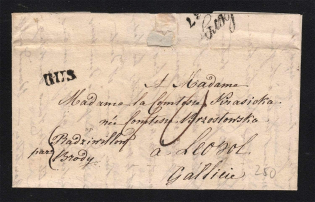 RUS
A Madame
Madame la Comtesse Krasicka
née Comtesse Brzostowska
Radziwillow
par Brody
à Leopol
Gallicie
250